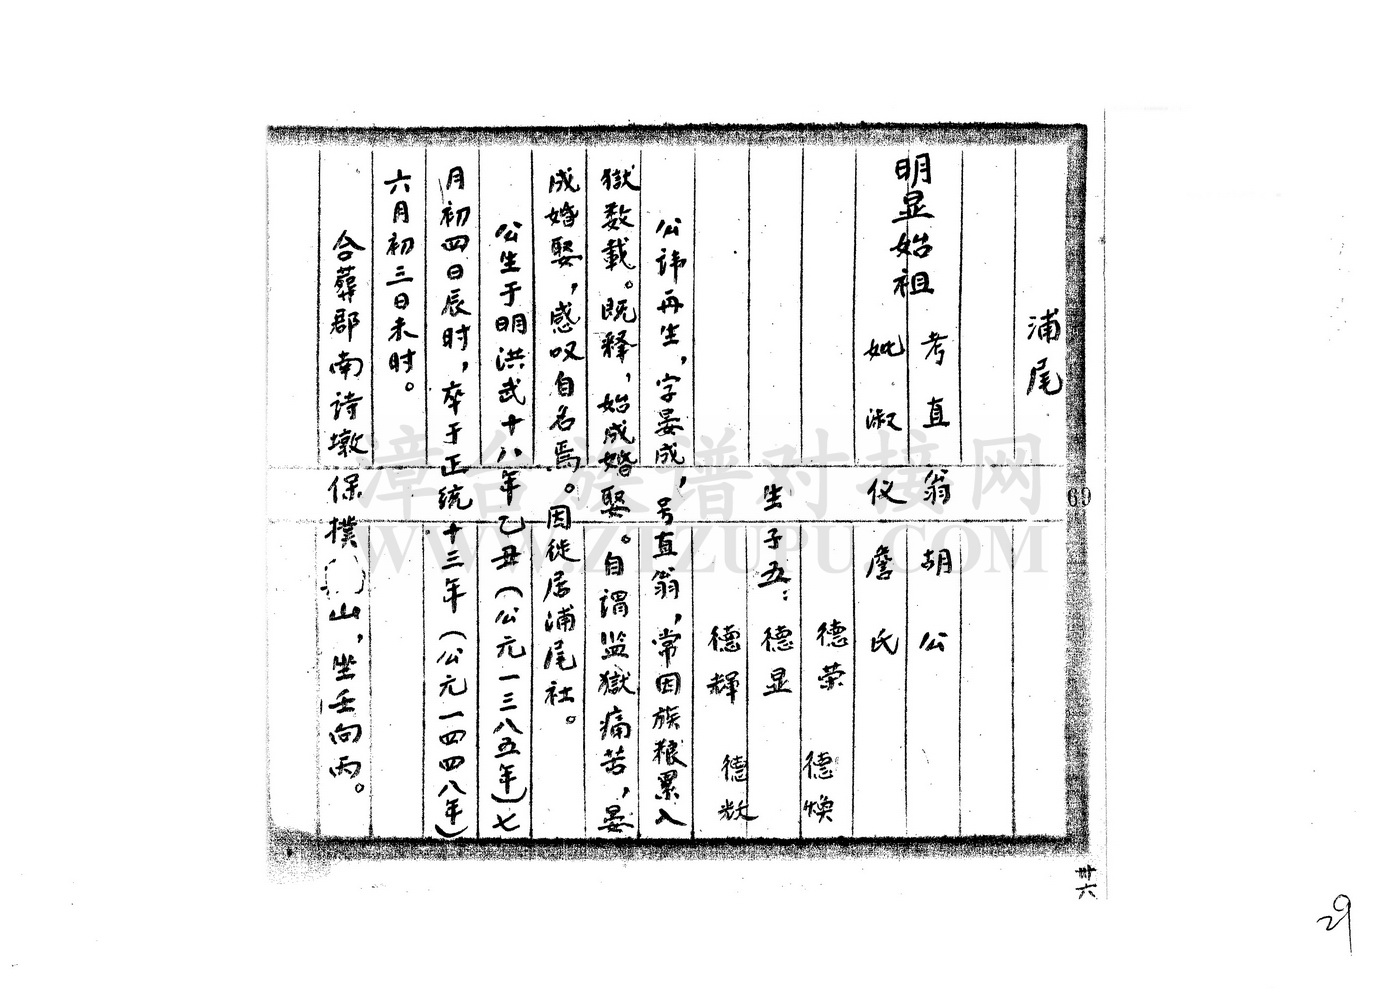 浦尾
明显始祖 考直翁胡公
妣淑仪詹氏
德荣 德焕
生子五：德显
德辉
公讳再生，字晏成，号直翁，常因族粮累入
獄数載。既释，始成婚娶。自谓监獄痛苦，晏
成婚娶，感叹自名焉。因徙居浦尾社。
公生于明洪武十八年乙丑（公元一三八五年）七
月初四日辰时，卒于正统十三年（公元一四四八年）
六月初三日未时。
合葬郡南诗墩保樸山，坐壬向丙。
69
卅六
29
漳台族谱对接网
WWW.ZTZUPU.COM